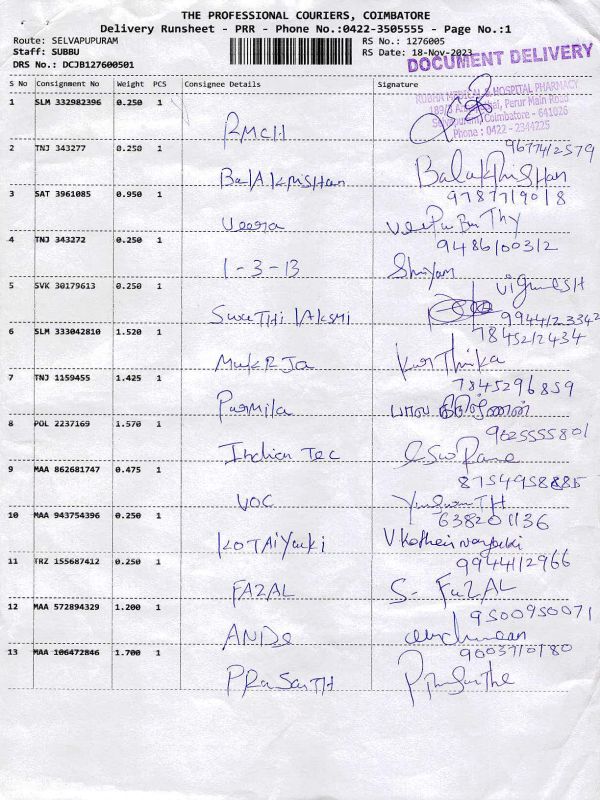 THE PROFESSIONAL COURIERS, COIMBATORE
Delivery Runsheet - PRR - Phone No.:0422-3505555 - Page No.:1
Route: SELVAPUPURAM
RS No.: 1276005
Staff: SUBBU
RS Date: 18-Nov-2023
DOCUMENT DELIVERY
DRS No.: DCJB127600501
S No Consignment No Weight PCS Consignee Details Signature
HOSPITAL PHARMACY
Perur Main Road
Coimbatore - 641026
Phone : 0422 - 2344225
1 SLM 332982396 0.250 1 RMCH
9677412579
2 TNJ 343277 0.250 1 BalAkrishan BalakrhiSHan
9787719018
3 SAT 3961085 0.950 1 Veera
9486100312
4 TNJ 343272 0.250 1 1-3-13 Shriyam
5 SVK 30179613 0.250 1 SuxeTHi lAksmi VigneSH
9944123342
7845212434
6 SLM 333042810 1.520 1 MukRJa KarThika
7845296859
7 TNJ 1159455 1.425 1 Parmila
9625555801
8 POL 2237169 1.570 1 Indian Tec
8754958885
9 MAA 862681747 0.475 1 VOC
638201136
10 MAA 943754396 0.250 1 KOTAiYaki
9944112966
11 TRZ 155687412 0.250 1 FAZAL S- FaZAL
9500950071
12 MAA 572894329 1.200 1 ANDS
9003710180
13 MAA 106472846 1.700 1 PRaSanTH